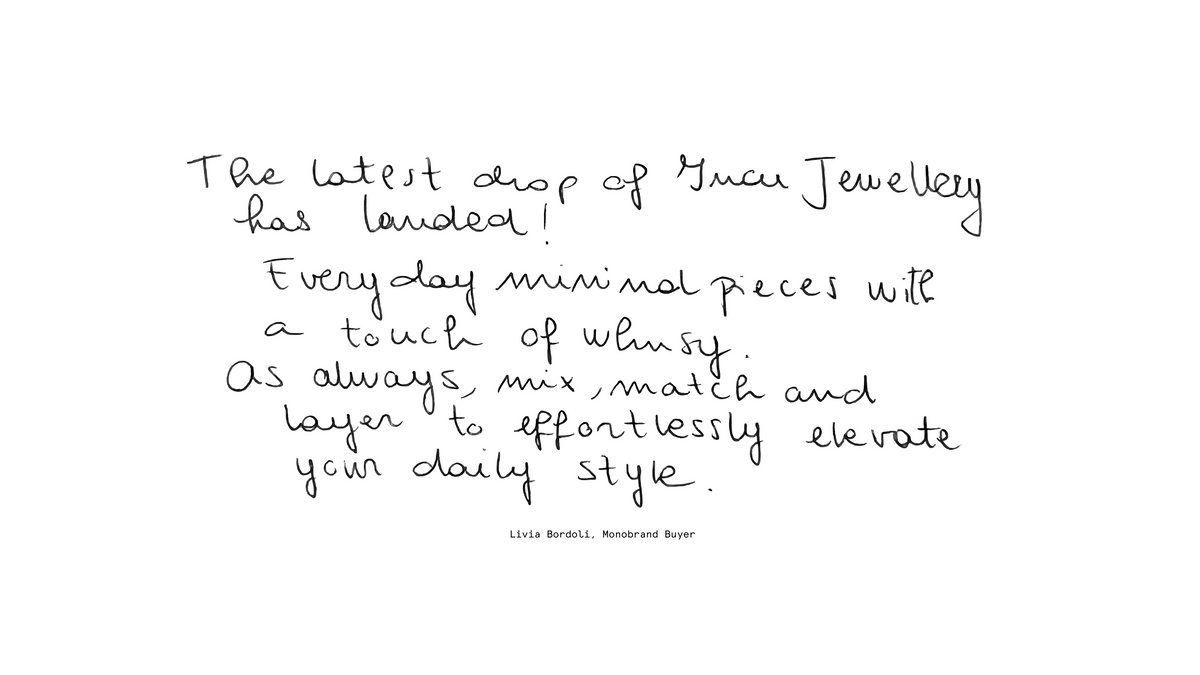 The latest drop of Incu Jewellery
has landed!
Everyday minimal pieces with
a touch of whimsy.
As always, mix, match and
layer to effortlessly elevate
your daily style.
Livia Bordoli, Monobrand Buyer